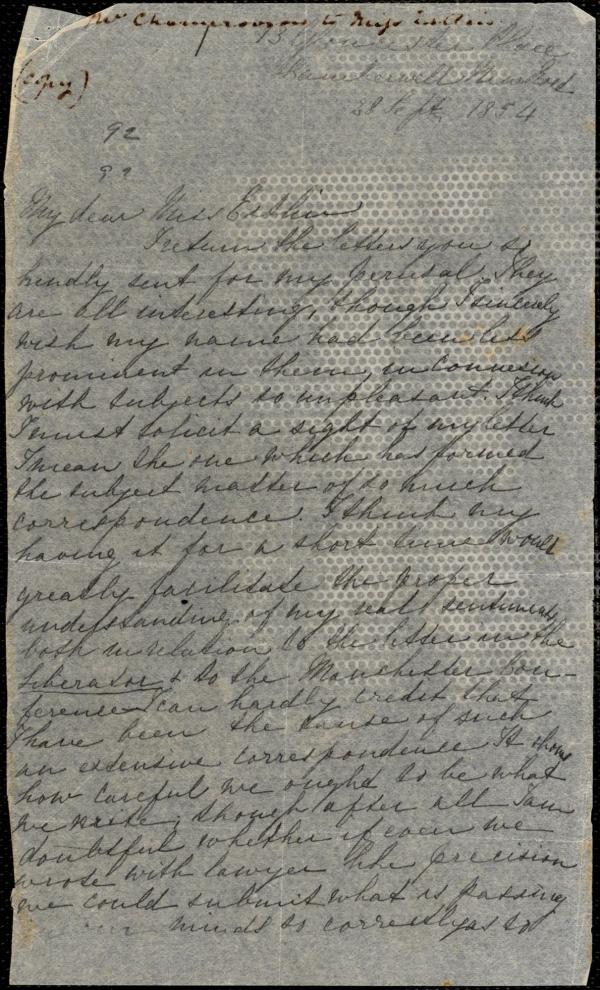 Mr Chamerovzow to Miss Estlin
13 Gloucester Place
Camberwell New Road
(copy)
28 Sept. 1854
92
92
My dear Miss Estlin
I return the letters you so
kindly sent for my perusal. They
are all interesting, though I sincerely
wish my name had been less
prominent in them, in connexion
with subjects so unpleasant. I think
I must solicit a sight of my letter
I mean the one which has formed
the subject matter of so much
correspondence. I think my
having it for a short time would
greatly facilitate the proper
understanding of my real sentiments
both in relation to the letter in the
Liberator & to the Manchester Con-
ference I can hardly credit that
I have been the cause of such
an extensive correspondence It shows
how careful we ought to be what
we write, though after all I am
doubtful whether if even we
wrote with lawyer like precision
we could submit what is passing
minds so correctly as to